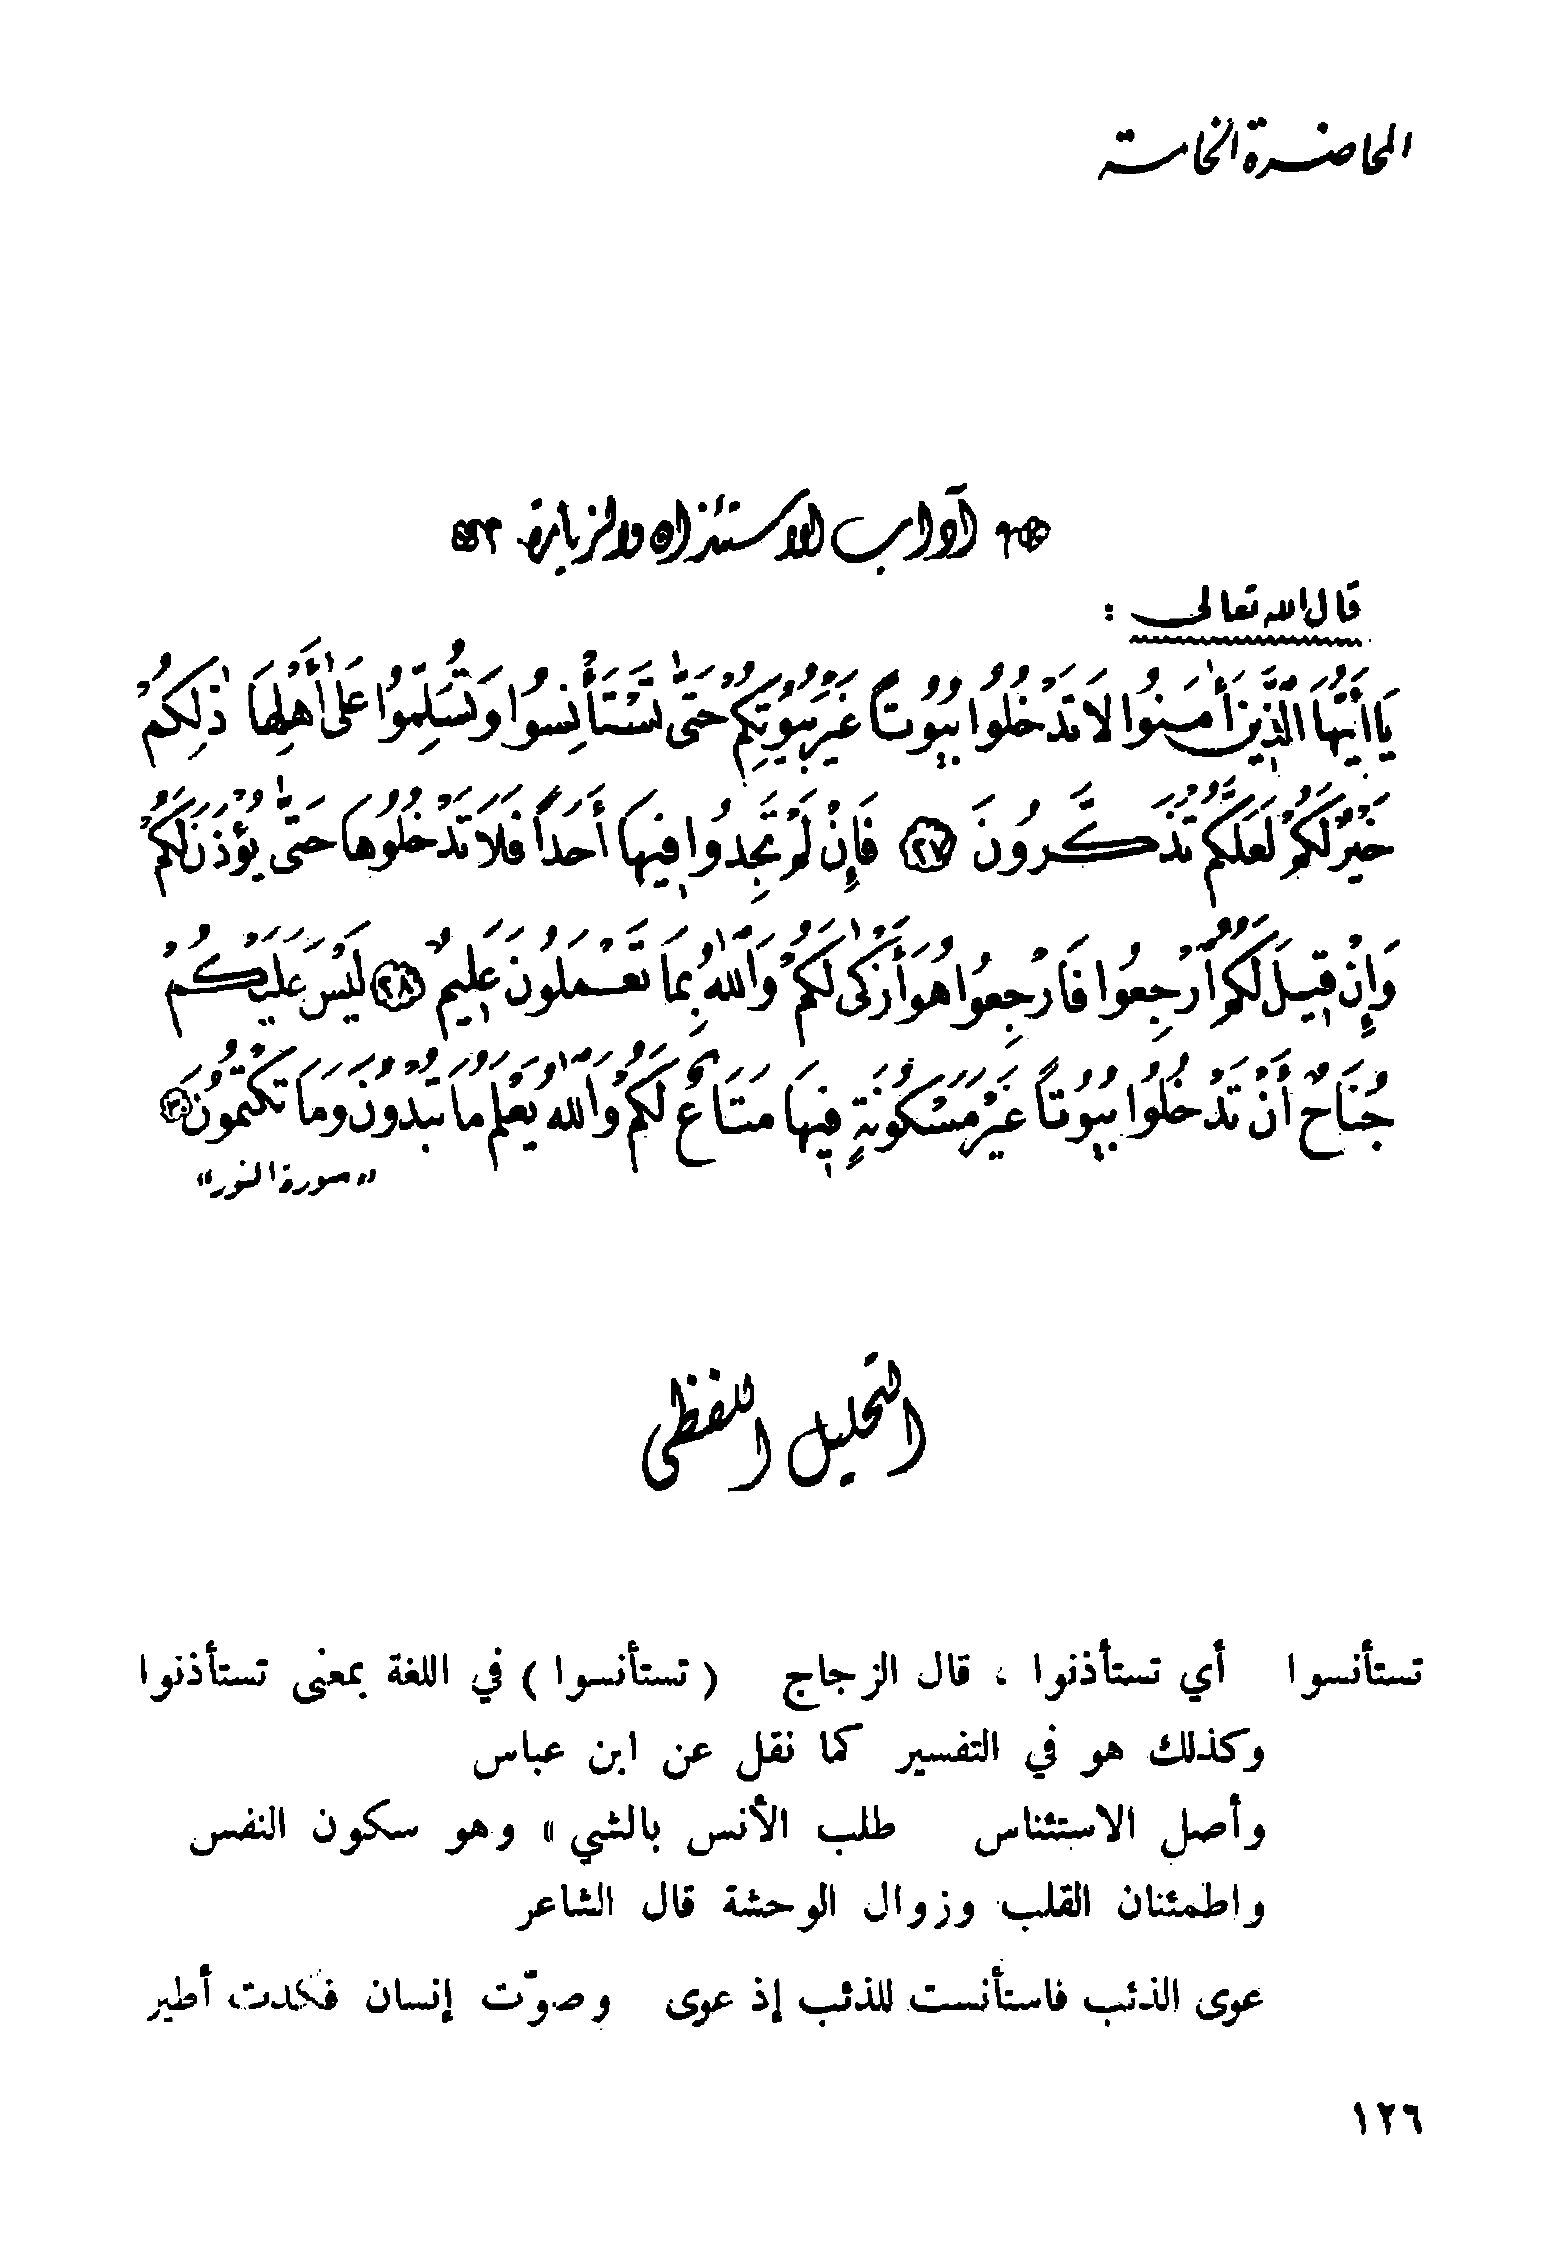 المحاضرة الخامسة
آداب الاستئذان والزيارة
قال الله تعالى :
يَا أَيُّهَا الَّذِينَ أٰمَنُوا لَا تَدْخُلُوا بُيُوتاً غَيْرَ بُيُوتِكُمْ حَتَّىٰ تَسْتَأْنِسُوا وَتُسَلِّمُوا عَلَىٰ أَهْلِهَا ذٰلِكُمْ
خَيْرٌ لَكُمْ لَعَلَّكُمْ تَذَكَّرُونَ ٢٧ فَإِنْ لَمْ تَجِدُوا فِيهَا أَحَداً فَلَا تَدْخُلُوهَا حَتَّىٰ يُؤْذَنَ لَكُمْ
وَإِنْ قِيلَ لَكُمُ ارْجِعُوا فَارْجِعُوا هُوَ أَزْكَىٰ لَكُمْ وَاللّٰهُ بِمَا تَعْمَلُونَ عَلِيمٌ ٢٨ لَيْسَ عَلَيْكُمْ
جُنَاحٌ أَنْ تَدْخُلُوا بُيُوتاً غَيْرَ مَسْكُونَةٍ فِيهَا مَتَاعٌ لَكُمْ وَاللّٰهُ يَعْلَمُ مَا تُبْدُونَ وَمَا تَكْتُمُونَ
«سورة النور»
التحليل اللفظي
تستأنسوا أي تستأذنوا ، قال الزجاج ( تستأنسوا ) في اللغة بمعنى تستأذنوا
وكذلك هو في التفسير كما نقل عن ابن عباس
وأصل الاستئناس طلب الأنس بالشي» وهو سكون النفس
واطمئنان القلب وزوال الوحشة قال الشاعر
عوى الذئب فاستأنست للذئب إذ عوى وصوّت إنسان فكدت أطير
١٢٦